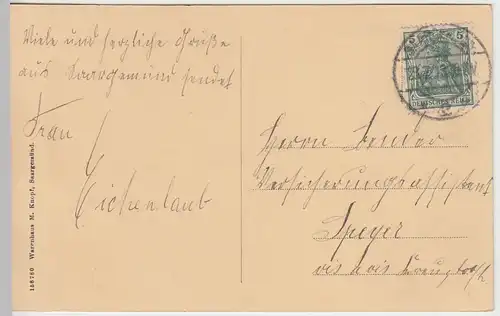 Viele und herzliche Grüße
aus Saargemünd sendet
Frau
Eichenlaub
158760 Warenhaus M. Knopf, Saargemünd.
5
DEUTSCHES REICH
Herrn
Versicherungsassistent
Speyer
vis à vis